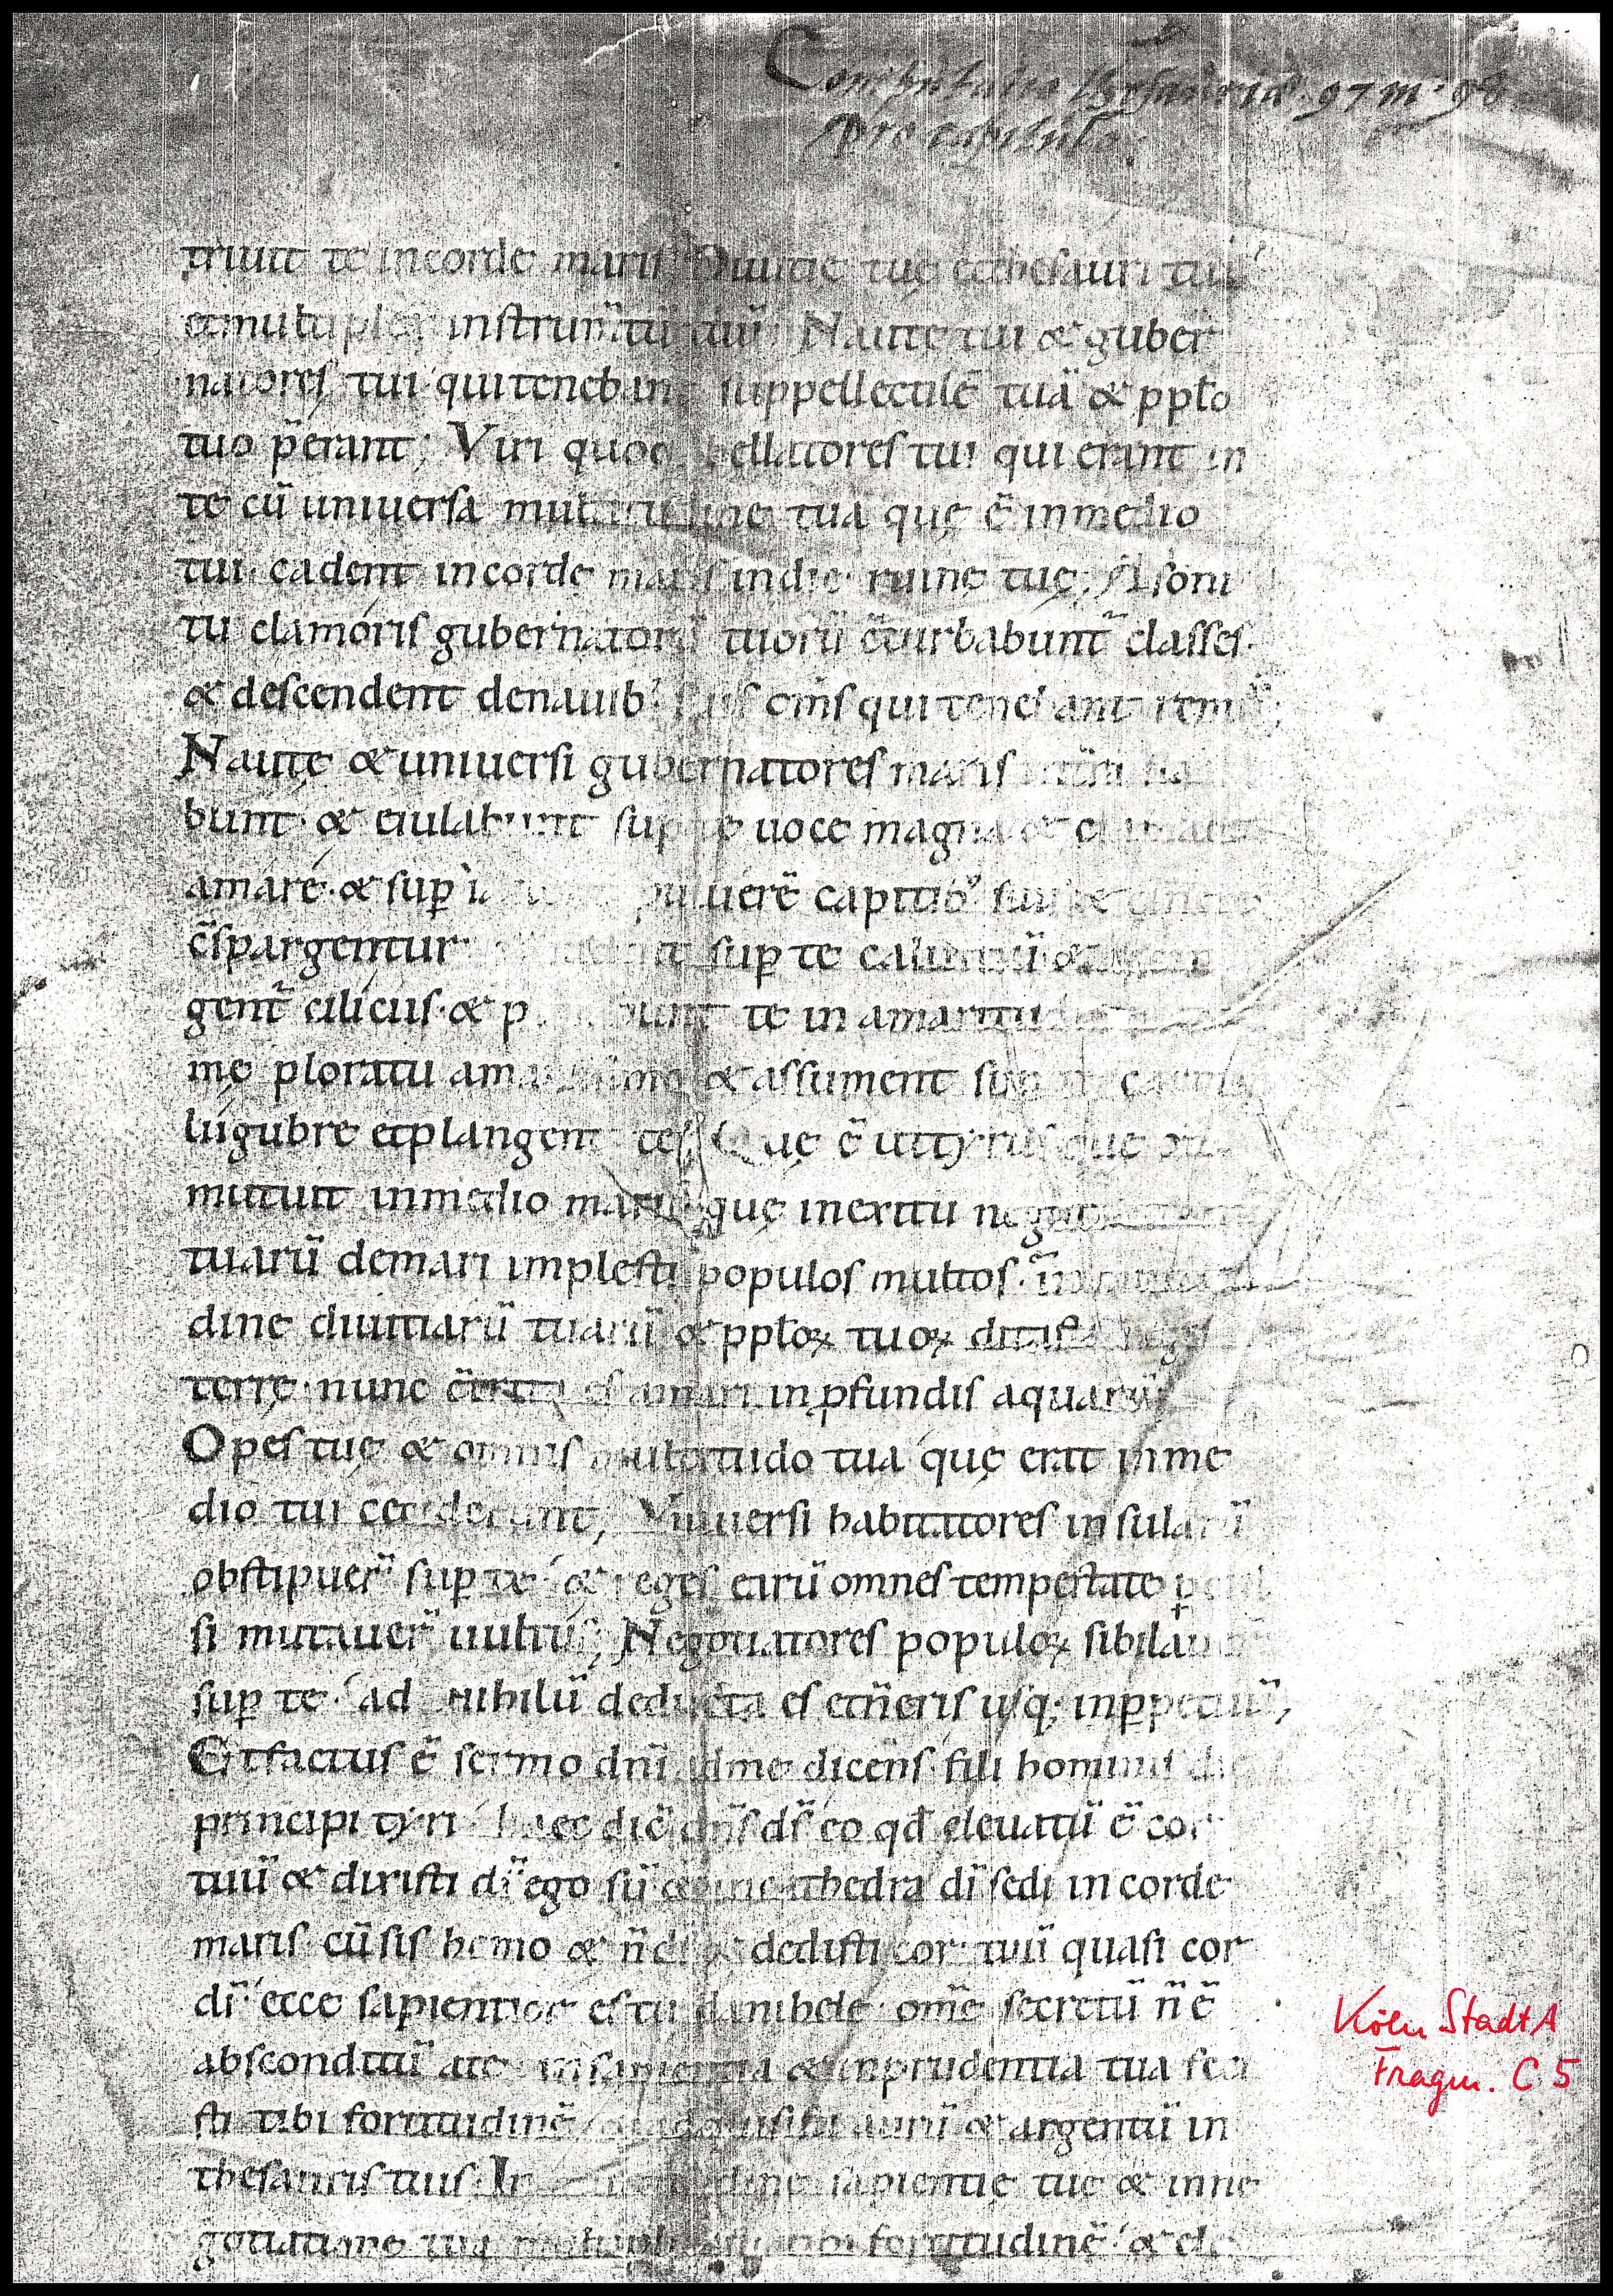 pro capitulo
triuit te incorde maris Diuitię tuę et thesauri tui
et multiplex instrum̄tū tuū Nautę tui & guber
natores tui qui tenebant suppellectilē tuā & pplo
tuo p̄erant; Viri quoq bellatores tui qui erant in
te cū uniuersa multitudine tua quę ē inmedio
tui cadent incorde maris indie ruinę tuę; A soni
tu clamoris gubernatorū tuorū c̄turbabunt᷑ classes.
& descendent denauib; suis om̄s qui tenebant remū
Nautę & uniuersi gubernatores maris
bunt & eiulabunt sup te uoce magna & clamabunt
amare. & sup̱ puluerē capitib; suis & cinere
c̄spargentur sup̱ te caluitiū &
gent᷑ cilicijs. & p bunt te in amaritu
mę ploratu amarissimo & assument sup te carm
lúgubre et plangent te; Quę ē ut tyrus quę ob
mutuit inmedio maris quę inexitu negot
tuarū demari implesti populos multos. in
dine diuitiarū tuarū & pploꝝ tuoꝝ ditasti reges
terrę nunc c̄trita es amari in ꝓfundis aquarū
Opes tuę & omnis multitudo tua quę erat inme
dio tui ceciderunt; Vniuersi habitatores insularū
obstipuer̄ sup̱ te & reges earū omnes tempestate
si mutauer̄ uultus; Negotiatores populoꝝ sibilau
sup̱ te ad nihilū deducta es et n̄eris usq; inp̱petuū;
Et factus ē sermo dn̄i adme dicens. fili hominis dic
principi tyri haec dic̄ dn̄s ds̄ eo qd̄ eleuatū ē cor
tuū & dixisti ds̄ ego sū & in cathedra di̅ sedi in corde
maris. cū sis homo & n̄ ds̄ & dedisti cor tuū quasi cor
di̅ ecce sapientior es tu danihele om̄e secretū n̄ ē
absconditū ate insapientia & inprudentia tua feci
sti tibi fortitudinē & adquisisti aurū & argentū in
thesauris tuis. In multitudine sapientię tuę & inne
gotiatione tua multiplicasti tibi fortitudinē & ele
Köln StadtA
Fragm. C 5